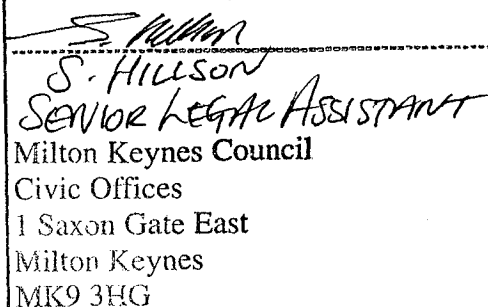 S. Hillson
S. HILLSON
SENIOR LEGAL ASSISTANT
Milton Keynes Council
Civic Offices
1 Saxon Gate East
Milton Keynes
MK9 3HG